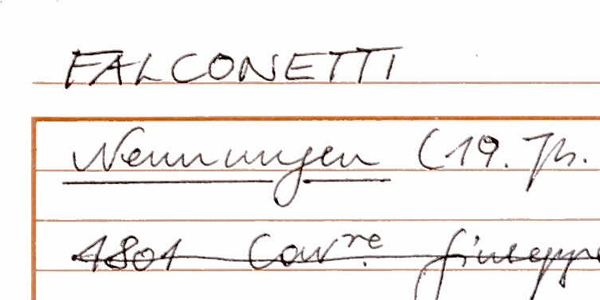 FALCONETTI
Nennungen (19. Jh.
1801 Cavre. Giuseppe